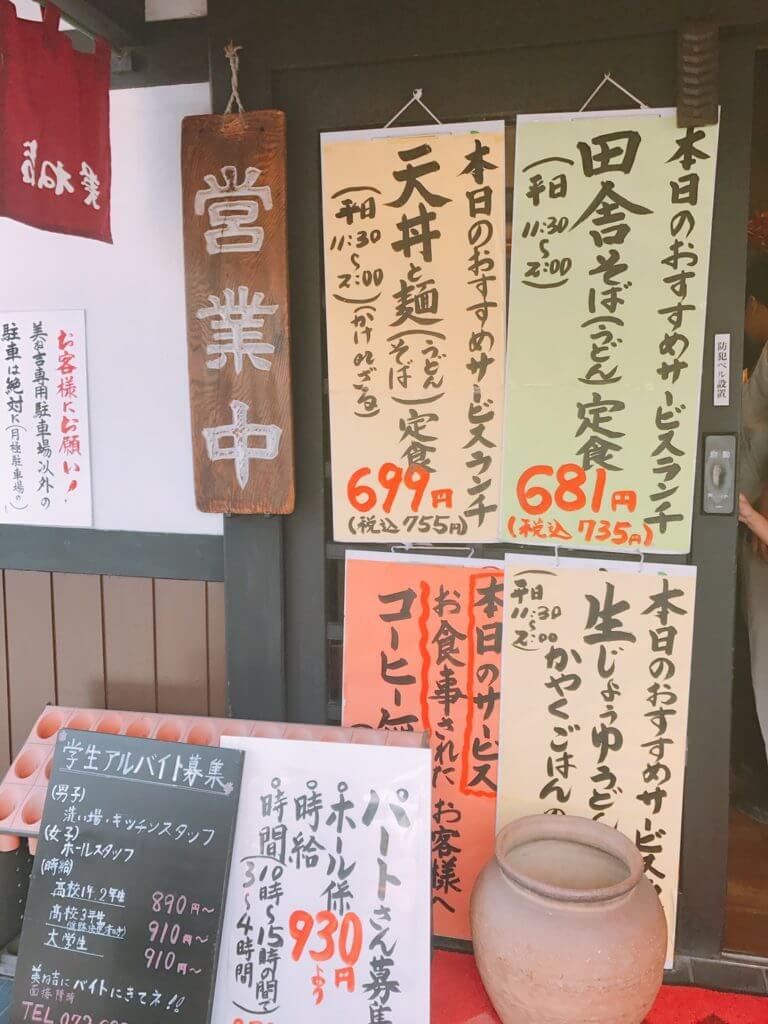 営業中
お客様にお願い!
美ね吉専用駐車場以外の
駐車は絶対に(月極駐車場の
本日のおすすめサービスランチ
天丼と麺(うどん
そば)定食
(平日
11:30
〜
2:00)
(かけorざる)
699円
(税込 755円)
本日のおすすめサービスランチ
田舎そば(うどん)定食
(平日
11:30
〜
2:00)
681円
(税込 735円)
防犯ベル設置
本日のサービス
お食事された お客様へ
コーヒー無
本日のおすすめサービス
生じょうゆうどん
かやくごはんの
平日
11:30
〜
2:00
学生アルバイト募集
(男子)
洗い場・キッチンスタッフ
(女子)
ホールスタッフ
(時給)
高校1年.2年生 890円〜
高校3年生 910円〜
大学生 910円〜
美ね吉にバイトにきてネ!!
面接随時
TEL 072
パートさん募集
ホール係
時給 930円より
時間 10時〜15時の間で
(3〜4時間)